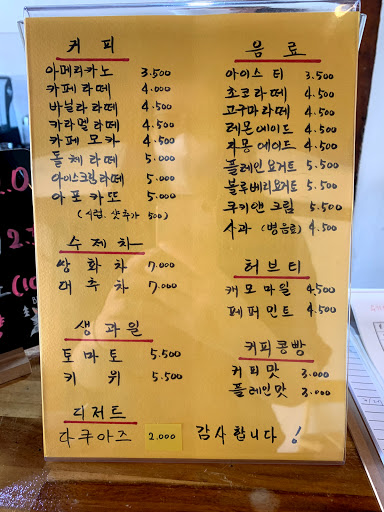 커피
아메리카노 3.500
카페라떼 4.000
바닐라라떼 4.500
카라멜라떼 4.500
카페모카 4.500
돌체라떼 5.000
아이스크림라떼 5.000
아포카또 5.000
(시럽, 샷추가 500)
수제차
쌍화차 7.000
대추차 7.000
생과일
토마토 5.500
키위 5.500
디저트
다쿠아즈 2.000
음료
아이스티 3.500
초코라떼 4.500
고구마라떼 4.500
레몬에이드 4.500
자몽에이드 4.500
플레인요거트 5.500
블루베리요거트 5.500
쿠키앤크림 5.500
사과(병음료) 4.500
허브티
캐모마일 4.500
페퍼민트 4.500
커피콩빵
커피맛 3.000
플레인맛 3.000
감사합니다!